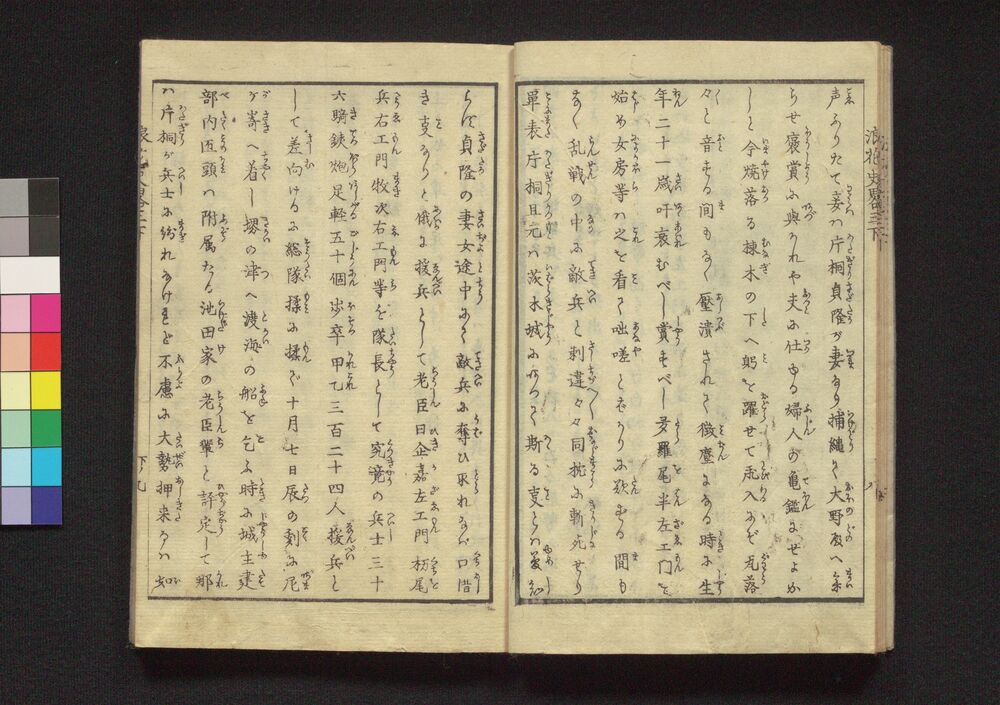 声ふりたて妾ハ片桐貞隆が妻なり捕縄して大野家へ参
らせ褒賞に與かれや夫に仕ゆる婦人の亀鑑にせよか
しと今焼落る棟木の下へ躬を躍せて飛入れバ瓦落
々と音する間もなく壓潰されて微塵になる時に生
年二十一歳吁哀むべし賞すべし多羅尾半左エ門を
始め女房等ハ之を看て咄嗟とばかりに歎ずる間も
なく乱戦の中に敵兵と刺違々々同枕に斬死せり
單表片桐且元ハ茨木城にありて斯る支とハ夢にも知
らず貞隆の妻女途中にて敵兵に奪ひ取れなバ口惜
き支なりと俄に援兵として老臣日企嘉左エ門栃尾
兵右エ門牧次右エ門等を隊長として究竟の兵士三十
六騎鉄炮足軽五十個歩卒甲乙三百二十四人援兵と
して差向けるに総隊揉に揉で十月七日辰の刻に尼
が嵜へ着し堺の津へ渡海の船を乞ふ時に城主建
部内匠頭ハ附属たる池田家の老臣輩と評定して那
ハ片桐が兵士に紛れなけれど不慮に大勢押来るハ如
浪花史略三下
八
下ノ九